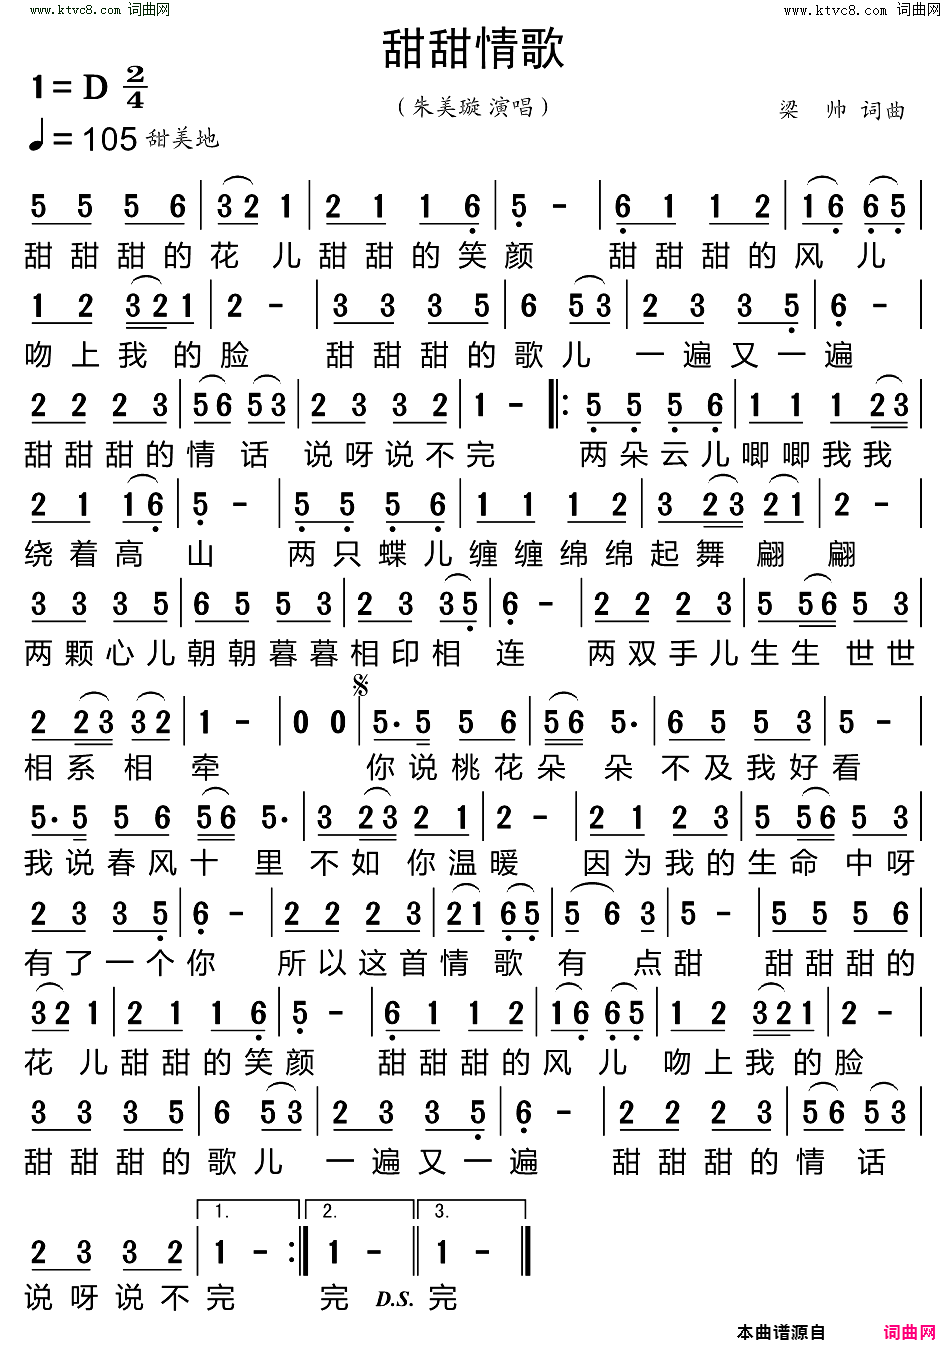 www.ktvc8.com 词曲网
www.ktvc8.com 词曲网
甜甜情歌
1= D 2/4
（朱美璇 演唱）
梁 帅 词曲
♩= 105 甜美地
5 5 5 6 | 3 2 1 | 2 1 1 6 | 5 - | 6 1 1 2 | 1 6 6 5 |
甜 甜 甜 的 花 儿 甜 甜 的 笑 颜 甜 甜 甜 的 风 儿
1 2 3 2 1 | 2 - | 3 3 3 5 | 6 5 3 | 2 3 3 5 | 6 - |
吻 上 我 的 脸 甜 甜 甜 的 歌 儿 一 遍 又 一 遍
2 2 2 3 | 5 6 5 3 | 2 3 3 2 | 1 - ‖: 5 5 5 6 | 1 1 1 2 3 |
甜 甜 甜 的 情 话 说 呀 说 不 完 两 朵 云 儿 唧 唧 我 我
2 1 1 6 | 5 - | 5 5 5 6 | 1 1 1 2 | 3 2 3 2 1 | 2 - |
绕 着 高 山 两 只 蝶 儿 缠 缠 绵 绵 起 舞 翩 翩
3 3 3 5 | 6 5 5 3 | 2 3 3 5 | 6 - | 2 2 2 3 | 5 5 6 5 3 |
两 颗 心 儿 朝 朝 暮 暮 相 印 相 连 两 双 手 儿 生 生 世 世
2 2 3 3 2 | 1 - | 0 0 | 5. 5 5 6 | 5 6 5. | 6 5 5 3 | 5 - |
相 系 相 牵 你 说 桃 花 朵 朵 不 及 我 好 看
5. 5 5 6 5 6 5. | 3 2 3 2 1 | 2 - | 2 1 2 2 | 5 5 6 5 3 |
我 说 春 风 十 里 不 如 你 温 暖 因 为 我 的 生 命 中 呀
2 3 3 5 | 6 - | 2 2 2 3 | 2 1 6 5 | 5 6 3 | 5 - | 5 5 5 6 |
有 了 一 个 你 所 以 这 首 情 歌 有 点 甜 甜 甜 甜 的
3 2 1 | 2 1 1 6 | 5 - | 6 1 1 2 | 1 6 6 5 | 1 2 3 2 1 | 2 - |
花 儿 甜 甜 的 笑 颜 甜 甜 甜 的 风 儿 吻 上 我 的 脸
3 3 3 5 | 6 5 3 | 2 3 3 5 | 6 - | 2 2 2 3 | 5 6 5 3 |
甜 甜 甜 的 歌 儿 一 遍 又 一 遍 甜 甜 甜 的 情 话
1. 2. 3.
2 3 3 2 | 1 - :‖ 1 - ‖ 1 - ‖
说 呀 说 不 完 完 D.S. 完
本曲谱源自 词曲网